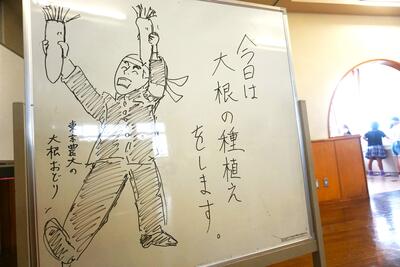 今日は
大根の種植え
をします。
東京農大の
大根おどり